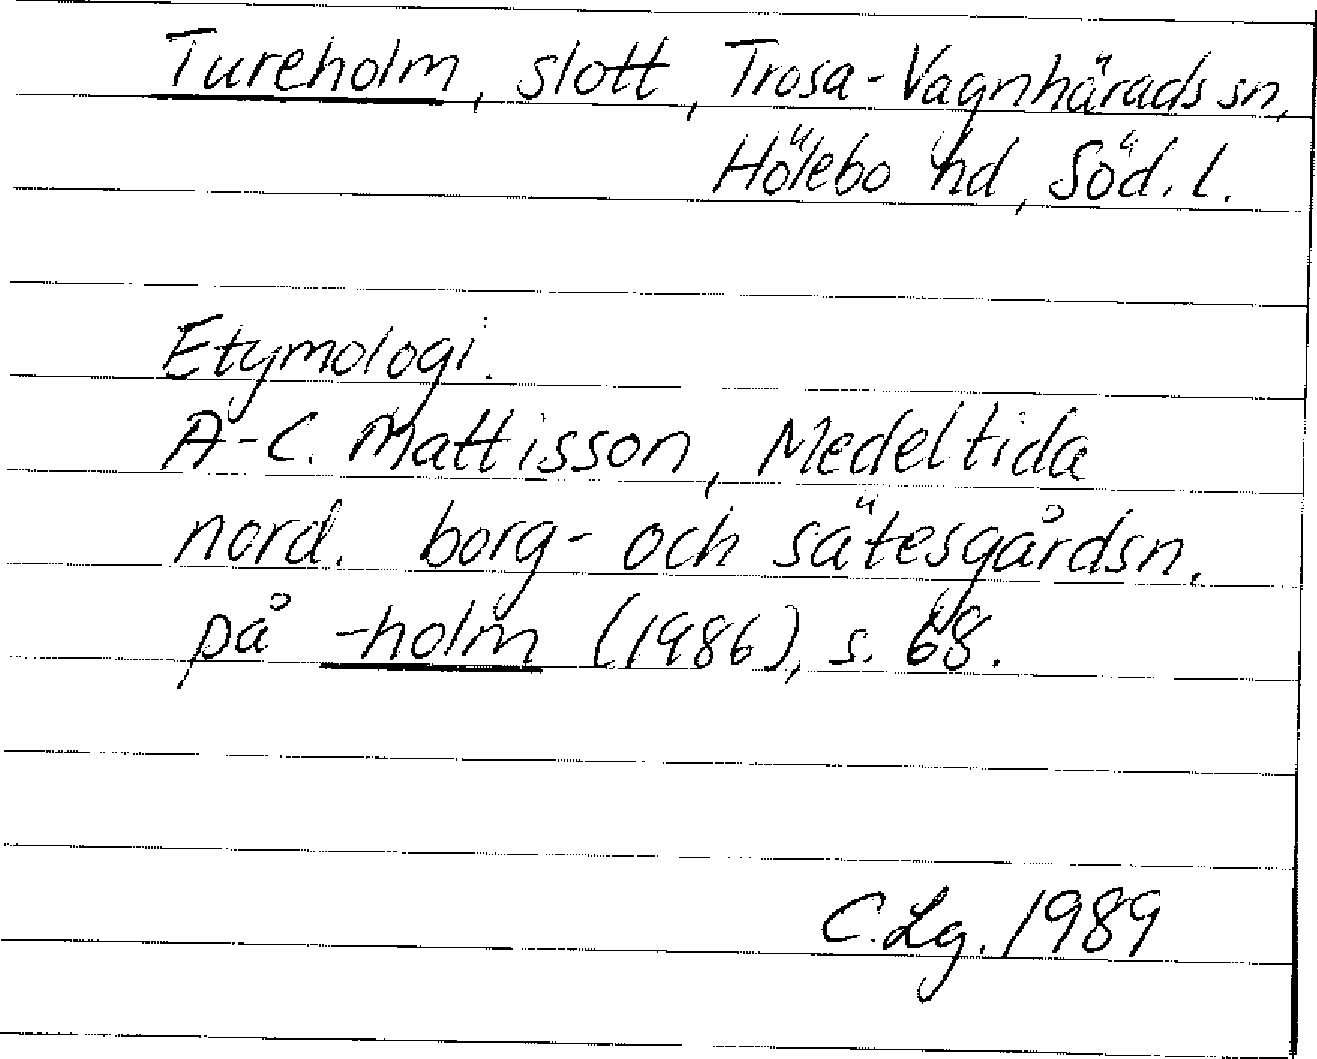 Tureholm, slott, Trosa-Vagnhärads sn,
Hölebo hd, Söd. l.
Etymologi.
A-C. Mattisson, Medeltida
nord. borg- och sätesgårdsn.
på -holm (1986), s. 68.
C.Lg. 1989